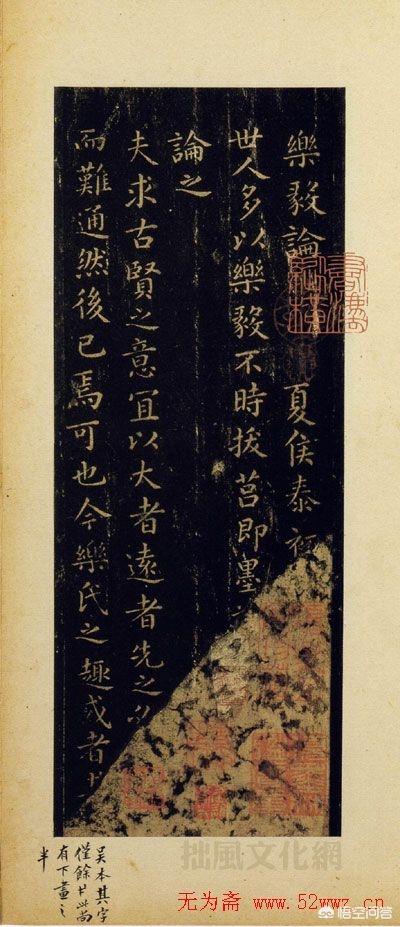 樂毅論 夏侯泰初
世人多以樂毅不時拔莒即墨
論之
夫求古賢之意宜以大者遠者先之必
而難通然後已焉可也今樂氏之趣或者
吳本其字
僅餘廾此尚
有下畫之
半
拙風文化網
无为斋 www.52wwz.cn
悟空问答